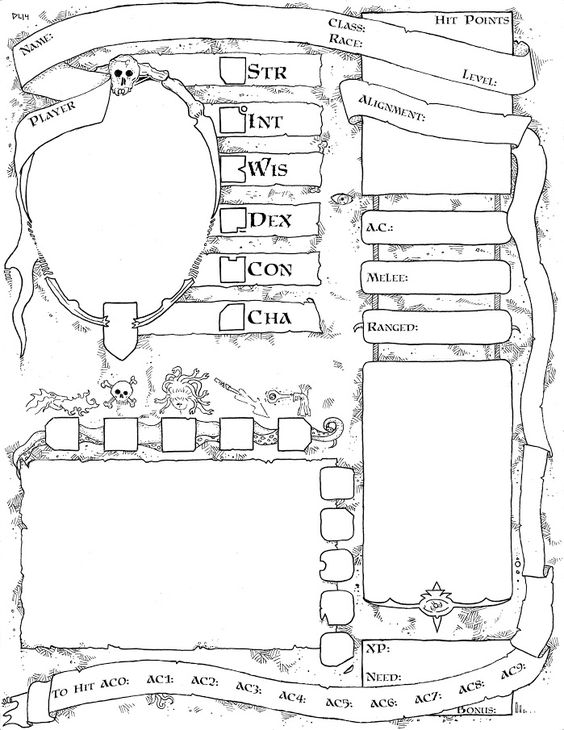 DL14
Name:
Class:
Race:
Level:
Hit Points
Player
Alignment:
Str
Int
Wis
Dex
Con
Cha
A.C.:
Melee:
Ranged:
XP:
Need:
Bonus:
To Hit AC0: AC1: AC2: AC3: AC4: AC5: AC6: AC7: AC8: AC9: